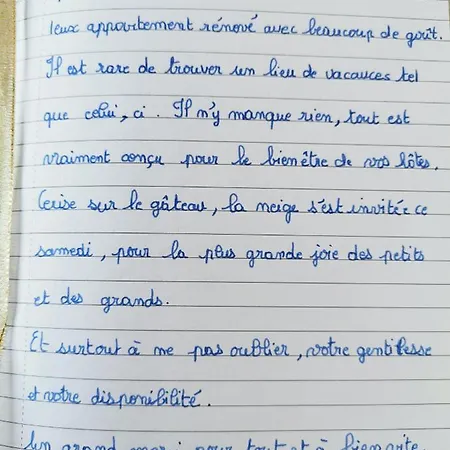 leux appartement rénové avec beaucoup de goût.
Il est rare de trouver un lieu de vacances tel
que celui, ci. Il n'y manque rien, tout est
vraiment conçu pour le bien être de vos hôtes.
Cerise sur le gâteau, la neige s'est invitée ce
samedi, pour la plus grande joie des petits
et des grands.
Et surtout à ne pas oublier, votre gentillesse
et votre disponibilité.
Un grand merci pour tout et à bientôt